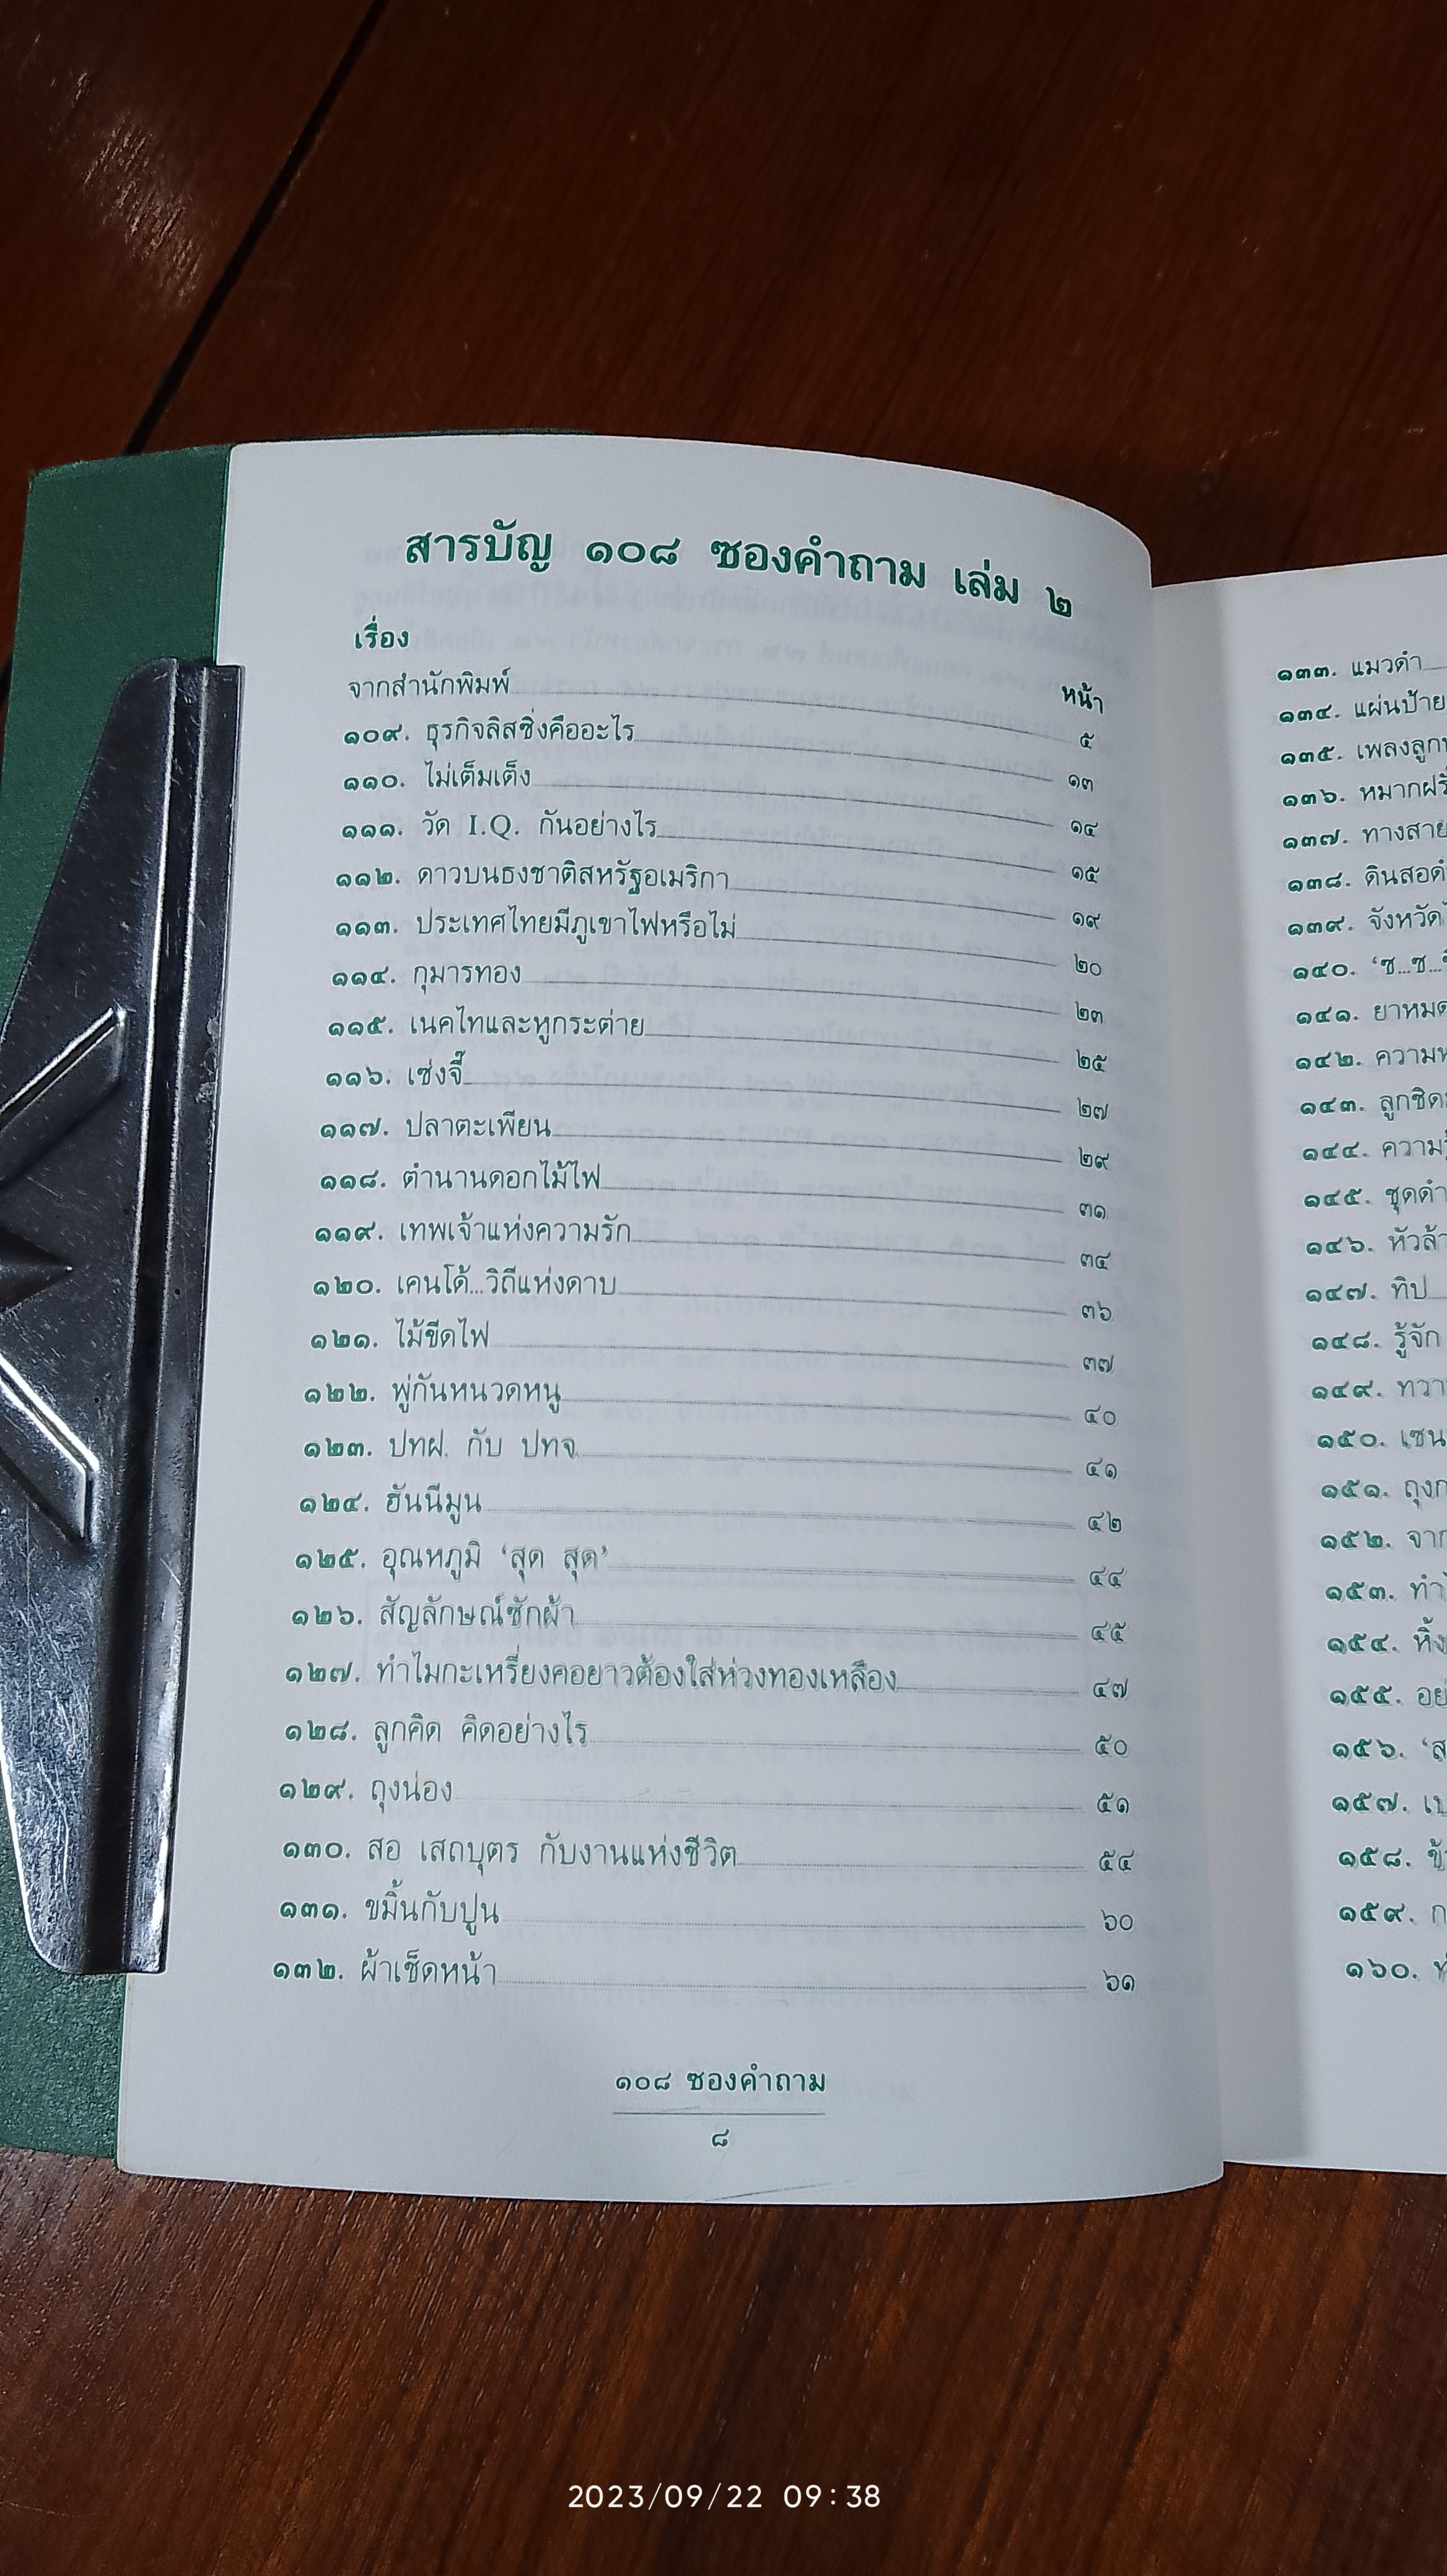 สารบัญ ๑๐๘ ซองคำถาม เล่ม ๒
เรื่อง หน้า
จากสำนักพิมพ์ ๕
๑๐๙. ธุรกิจลิสซิ่งคืออะไร ๑๓
๑๑๐. ไม่เต็มเต็ง ๑๔
๑๑๑. วัด I.Q. กันอย่างไร ๑๕
๑๑๒. ดาวบนธงชาติสหรัฐอเมริกา ๑๙
๑๑๓. ประเทศไทยมีภูเขาไฟหรือไม่ ๒๐
๑๑๔. กุมารทอง ๒๓
๑๑๕. เนคไทและหูกระต่าย ๒๕
๑๑๖. เซ่งจี๊ ๒๗
๑๑๗. ปลาตะเพียน ๒๙
๑๑๘. ตำนานดอกไม้ไฟ ๓๑
๑๑๙. เทพเจ้าแห่งความรัก ๓๔
๑๒๐. เคนโด้...วิถีแห่งดาบ ๓๖
๑๒๑. ไม้ขีดไฟ ๓๗
๑๒๒. พู่กันหนวดหนู ๔๐
๑๒๓. ปทฝ. กับ ปทจ. ๔๑
๑๒๔. ฮันนีมูน ๔๒
๑๒๕. อุณหภูมิ ‘สุด สุด’ ๔๔
๑๒๖. สัญลักษณ์ซักผ้า ๔๕
๑๒๗. ทำไมกะเหรี่ยงคอยาวต้องใส่ห่วงทองเหลือง ๔๗
๑๒๘. ลูกคิด คิดอย่างไร ๕๐
๑๒๙. ถุงน่อง ๕๑
๑๓๐. สอ เสถบุตร กับงานแห่งชีวิต ๕๔
๑๓๑. ขมิ้นกับปูน ๖๐
๑๓๒. ผ้าเช็ดหน้า ๖๑
๑๐๘ ซองคำถาม
๘
๑๓๓. แมวดำ
๑๓๔. แผ่นป้าย
๑๓๕. เพลงลูก
๑๓๖.
๑๓๗. ทางสาย
๑๓๘.
๑๓๙. จังหวัด
๑๔๐. ‘ซ...ซ...
๑๔๑.
๑๔๒.
๑๔๓.
๑๔๔.
๑๔๕. ชุดดำ
๑๔๖.
๑๔๗. ทิป
๑๔๘. รู้จัก
๑๔๙.
๑๕๐.
๑๕๑.
๑๕๒.
๑๕๓.
๑๕๔.
๑๕๕.
๑๕๖.
๑๕๗.
๑๕๘.
๑๕๙.
๑๖๐.
2023/09/22 09:38